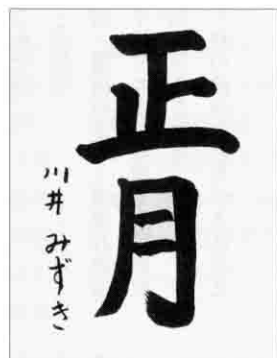 正月
川井 みずき